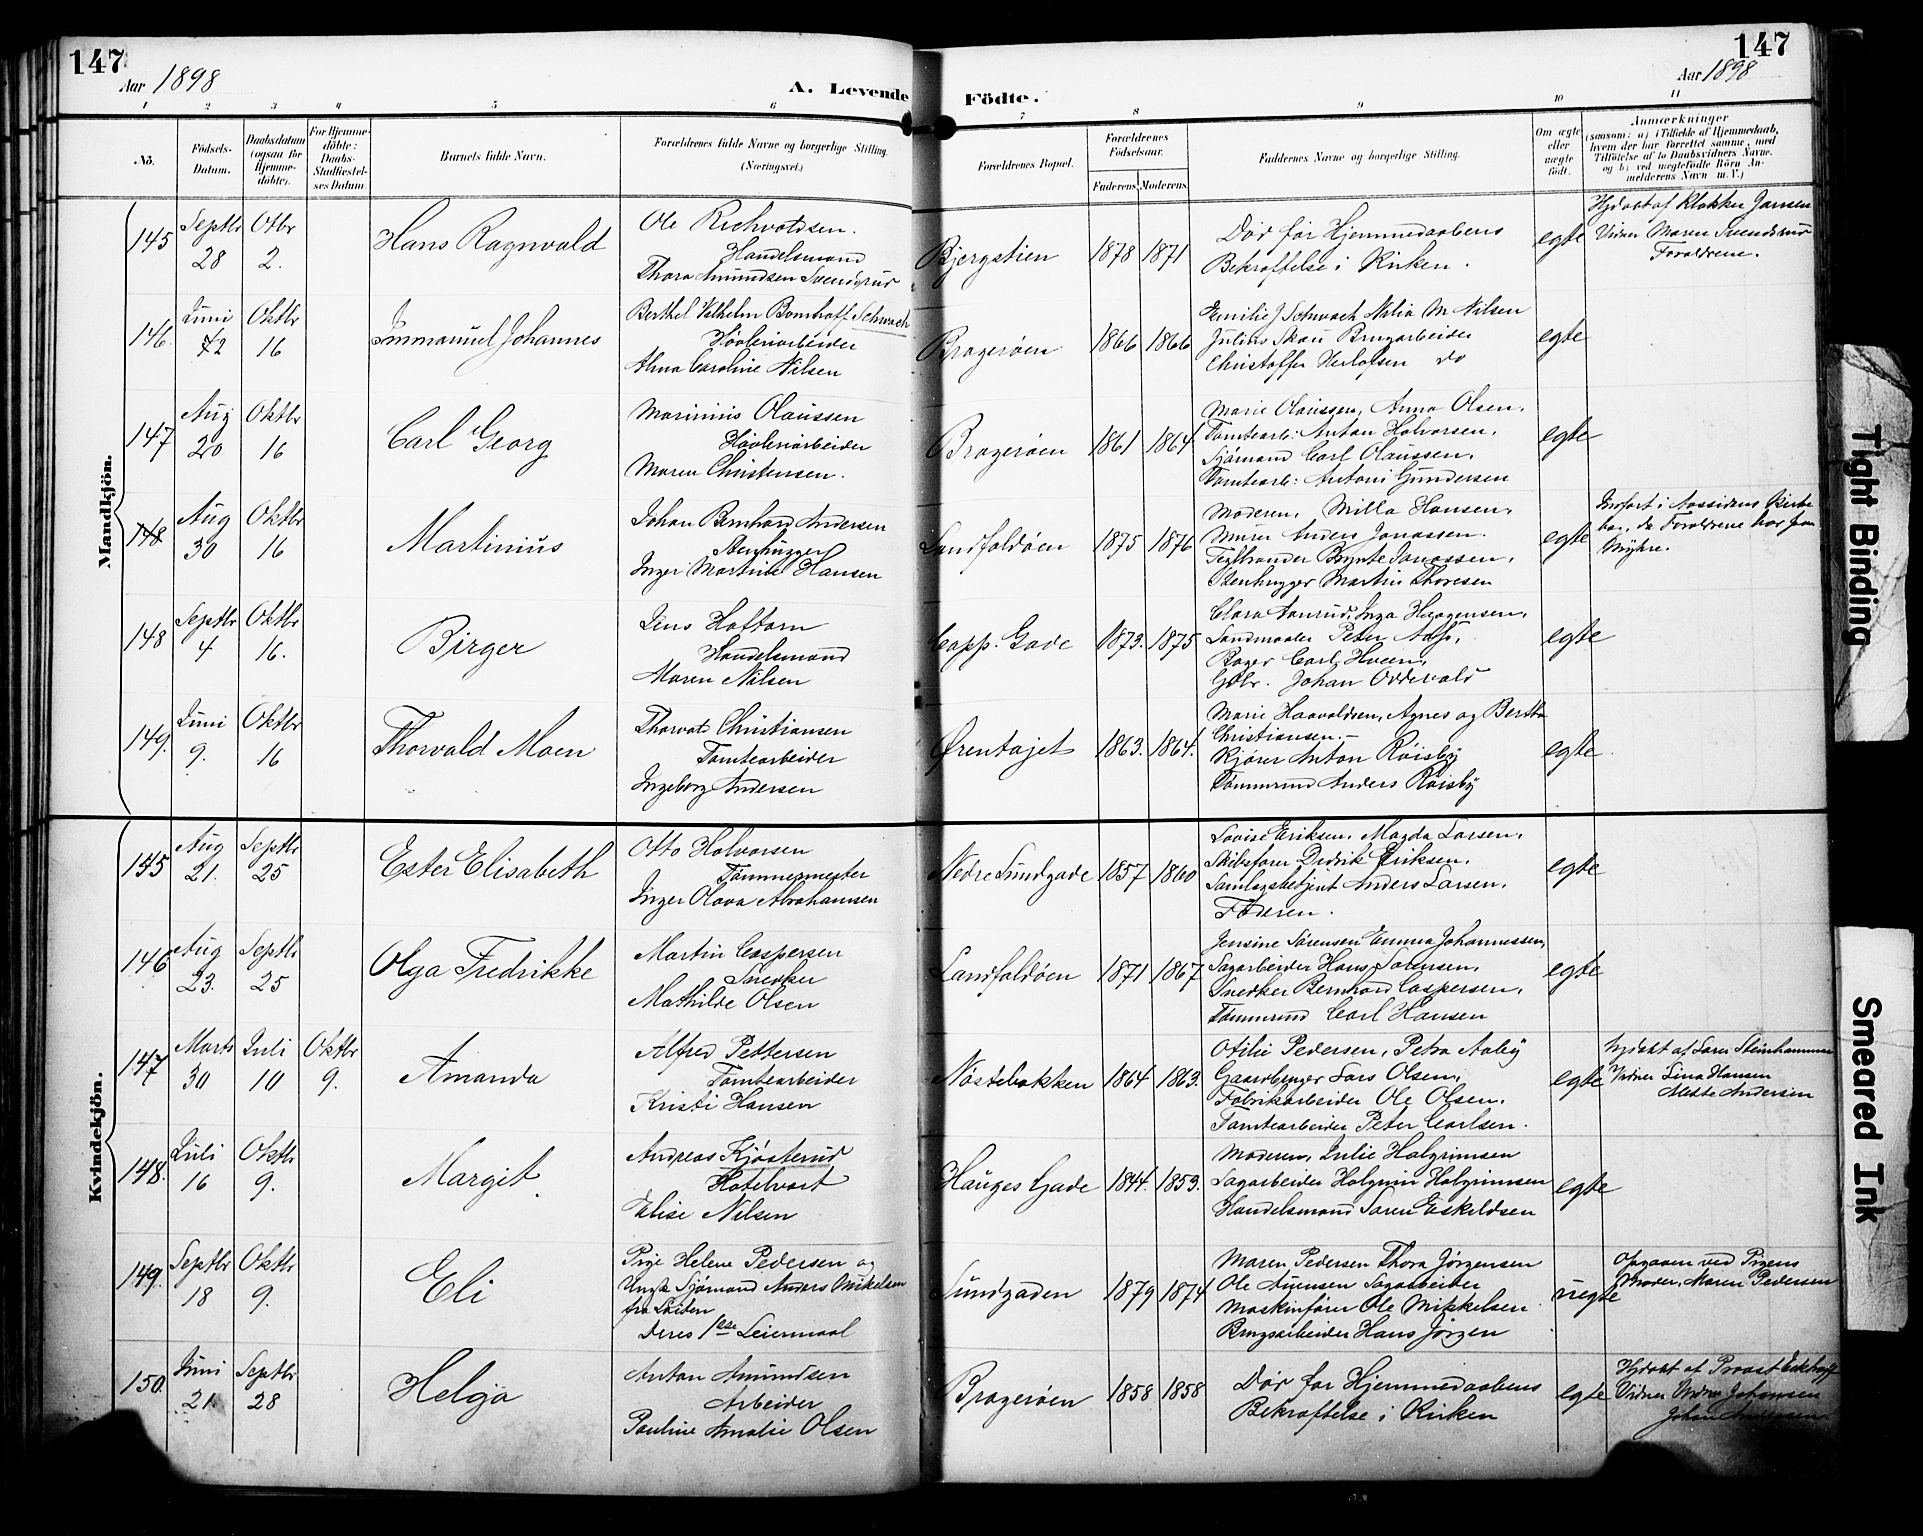 147
Aar 1898
A. Levende Födte.
147
Aar 1898
1 2 3 4 5 6 7 8 9 10 11
No.
Födsels-
Datum.
Daabsdatum
(ogsaa for
Hjemme-
döbte).
For Hjemme-
döbte:
Daabs-
Stadfæstel-
ses Datum.
Barnets fulde Navn.
Forældrenes fulde Navne og borgerlige Stilling.
(Næringsvei.)
Forældrenes Bopæl.
Forældrenes
Födselsaar.
Faderens. Moderens.
Faddernes Navne og borgerlige Stilling.
Om ægte
eller
uægte
födt.
Anmærkninger
(saasom: a) i Tilfælde af Hjemmedaab,
hvem der har forrettet samme, med
Tilföielse af to Daabsvidners Navne.
og b) ved uægtefödte Börn An-
melderens Navn m. V.)
Mandkjön.
145
Septbr
28
Otbr
2.
Hans Ragnvald
Ole Richvoldsen.
Handelsmand
Thora Amundsen Svendsrud
Bjergstien
1878 1871
Död før Hjemmedaabens
Bekræftelse i Kirken.
egte
Hjdøbt af Klokker Jansen
Vidner Maren Svendsrud
Forældrene.
146
Juni
12
Oktbr
16
Immanuel Johannes
Berthel Vilhelm Bomhoff Schwach
Høvleriarbeider
Alma Caroline Nilsen
Bragerøen
1866 1866
Emilie J Schwach Nilia M Nilsen
Julius Skau Brugarbeider
Christoffer Herlofsen do
egte
147
Aug
20
Oktbr
16
Carl Georg
Marinius Olaussen
Høvleriarbeider
Maren Christensen.
Bragerøen
1861 1864
Marie Olaussen, Anna Olsen,
Tomtearb: Anton Halvorsen,
Sjømand Carl Olaussen,
Tomtearb: Antoni Gundersen
egte
148
Aug
30
Oktbr
16
Martinius
Johan Bernhard Andersen
Stenhugger
Inger Martine Hansen
Landfaldøen
1875 1876
Moderen, Milla Hansen,
Murer Anders Jonassen.
Teglbrænder Brynte Jonassen,
Stenhugger Martin Thoresen
egte
148
Septbr
4
Oktbr
16.
Birger
Jens Hoftorn
Handelsmand
Maren Nilsen
Capp. Gade
1873. 1875
Clara Aanrud, Inga Haagensen,
Landmaaler Peter Aas,
Bager Carl Hveen,
Gdbr. Johan Oddevald
egte
149.
Juni
9.
Oktbr
16
Thorvald Moen
Thorvald Christiansen
Tomtearbeider
Ingeborg Andersen
Ørentajet
1863. 1864.
Marie Haavaldsen, Agnes og Bertha
Christiansen.
Kjører Anton Røisby
Tømmermd Anders Røisby
egte
Kvindekjön.
145
Aug
21.
Septbr
25
Ester Elisabeth
Otto Halvorsen
Tømmermester
Inger Olava Abrahamsen
Nedre Sundgade
1857 1860
Lovise Eriksen, Magda Larsen,
Skibsfører Didrik Eriksen.
Samlagsbetjent Anders Larsen.
Faderen.
egte
146
Aug
23.
Septbr
25
Olga Fredrikke
Martin Caspersen
Snedker
Mathilde Olsen
Landfaldøen
1871 1867
Jensine Sørensen Emma Johannessen,
Sagarbeider Hans Sørensen,
Snedker Bernhard Caspersen,
Tømmermd Carl Hansen
egte
147
Marts
30
Juli
10
Oktbr
9.
Amanda
Alfred Pettersen
Tomtearbeider
Kristi Hansen
Nøstebakken
1864 1863.
Otilie Pedersen, Petra Aaby
Gaardbruger Lars Olsen,
Fabrikarbeider Ole Olsen.
Tomtearbeider Peter Carlsen.
egte
Vidner Lina Hansen
Mette Andersen
148.
Juli
16
Oktbr
9.
Margit
Andreas Kjøsterud
Hotelvært
Elise Nilsen
Hauges Gade
1844. 1853.
Moderen, Julie Halgrimsen
Sagarbeider Halgrim Halgrimsen
Handelsmand Søren Eskildsen
egte
149.
Septbr
18
Oktbr
9.
Eli
Pige Helene Pedersen og
Ungk Sjømand Anders Mikelsen
Deres 1ste Leiermaal
Sundgaden
1879 1874
Maren Pedersen Thora Jørgensen
Ole Sagarbeider
Maskinfører Ole Mikkelsen
Brugsarbeider Hans Jørgen
uegte
Opgaven ved Pigens
Moder, Maren Pedersen
150.
Juni
21
Septbr
28
Helga
Anton Amundsen
Arbeider
Pauline Amalie Olsen
Bragerøen
1858 1858
Död før Hjemmedaabens
Bekræftelse i Kirken
egte
Hjdøbt af Provst Eckhoff
Johan Andersen
Tight Binding
Smeared Ink